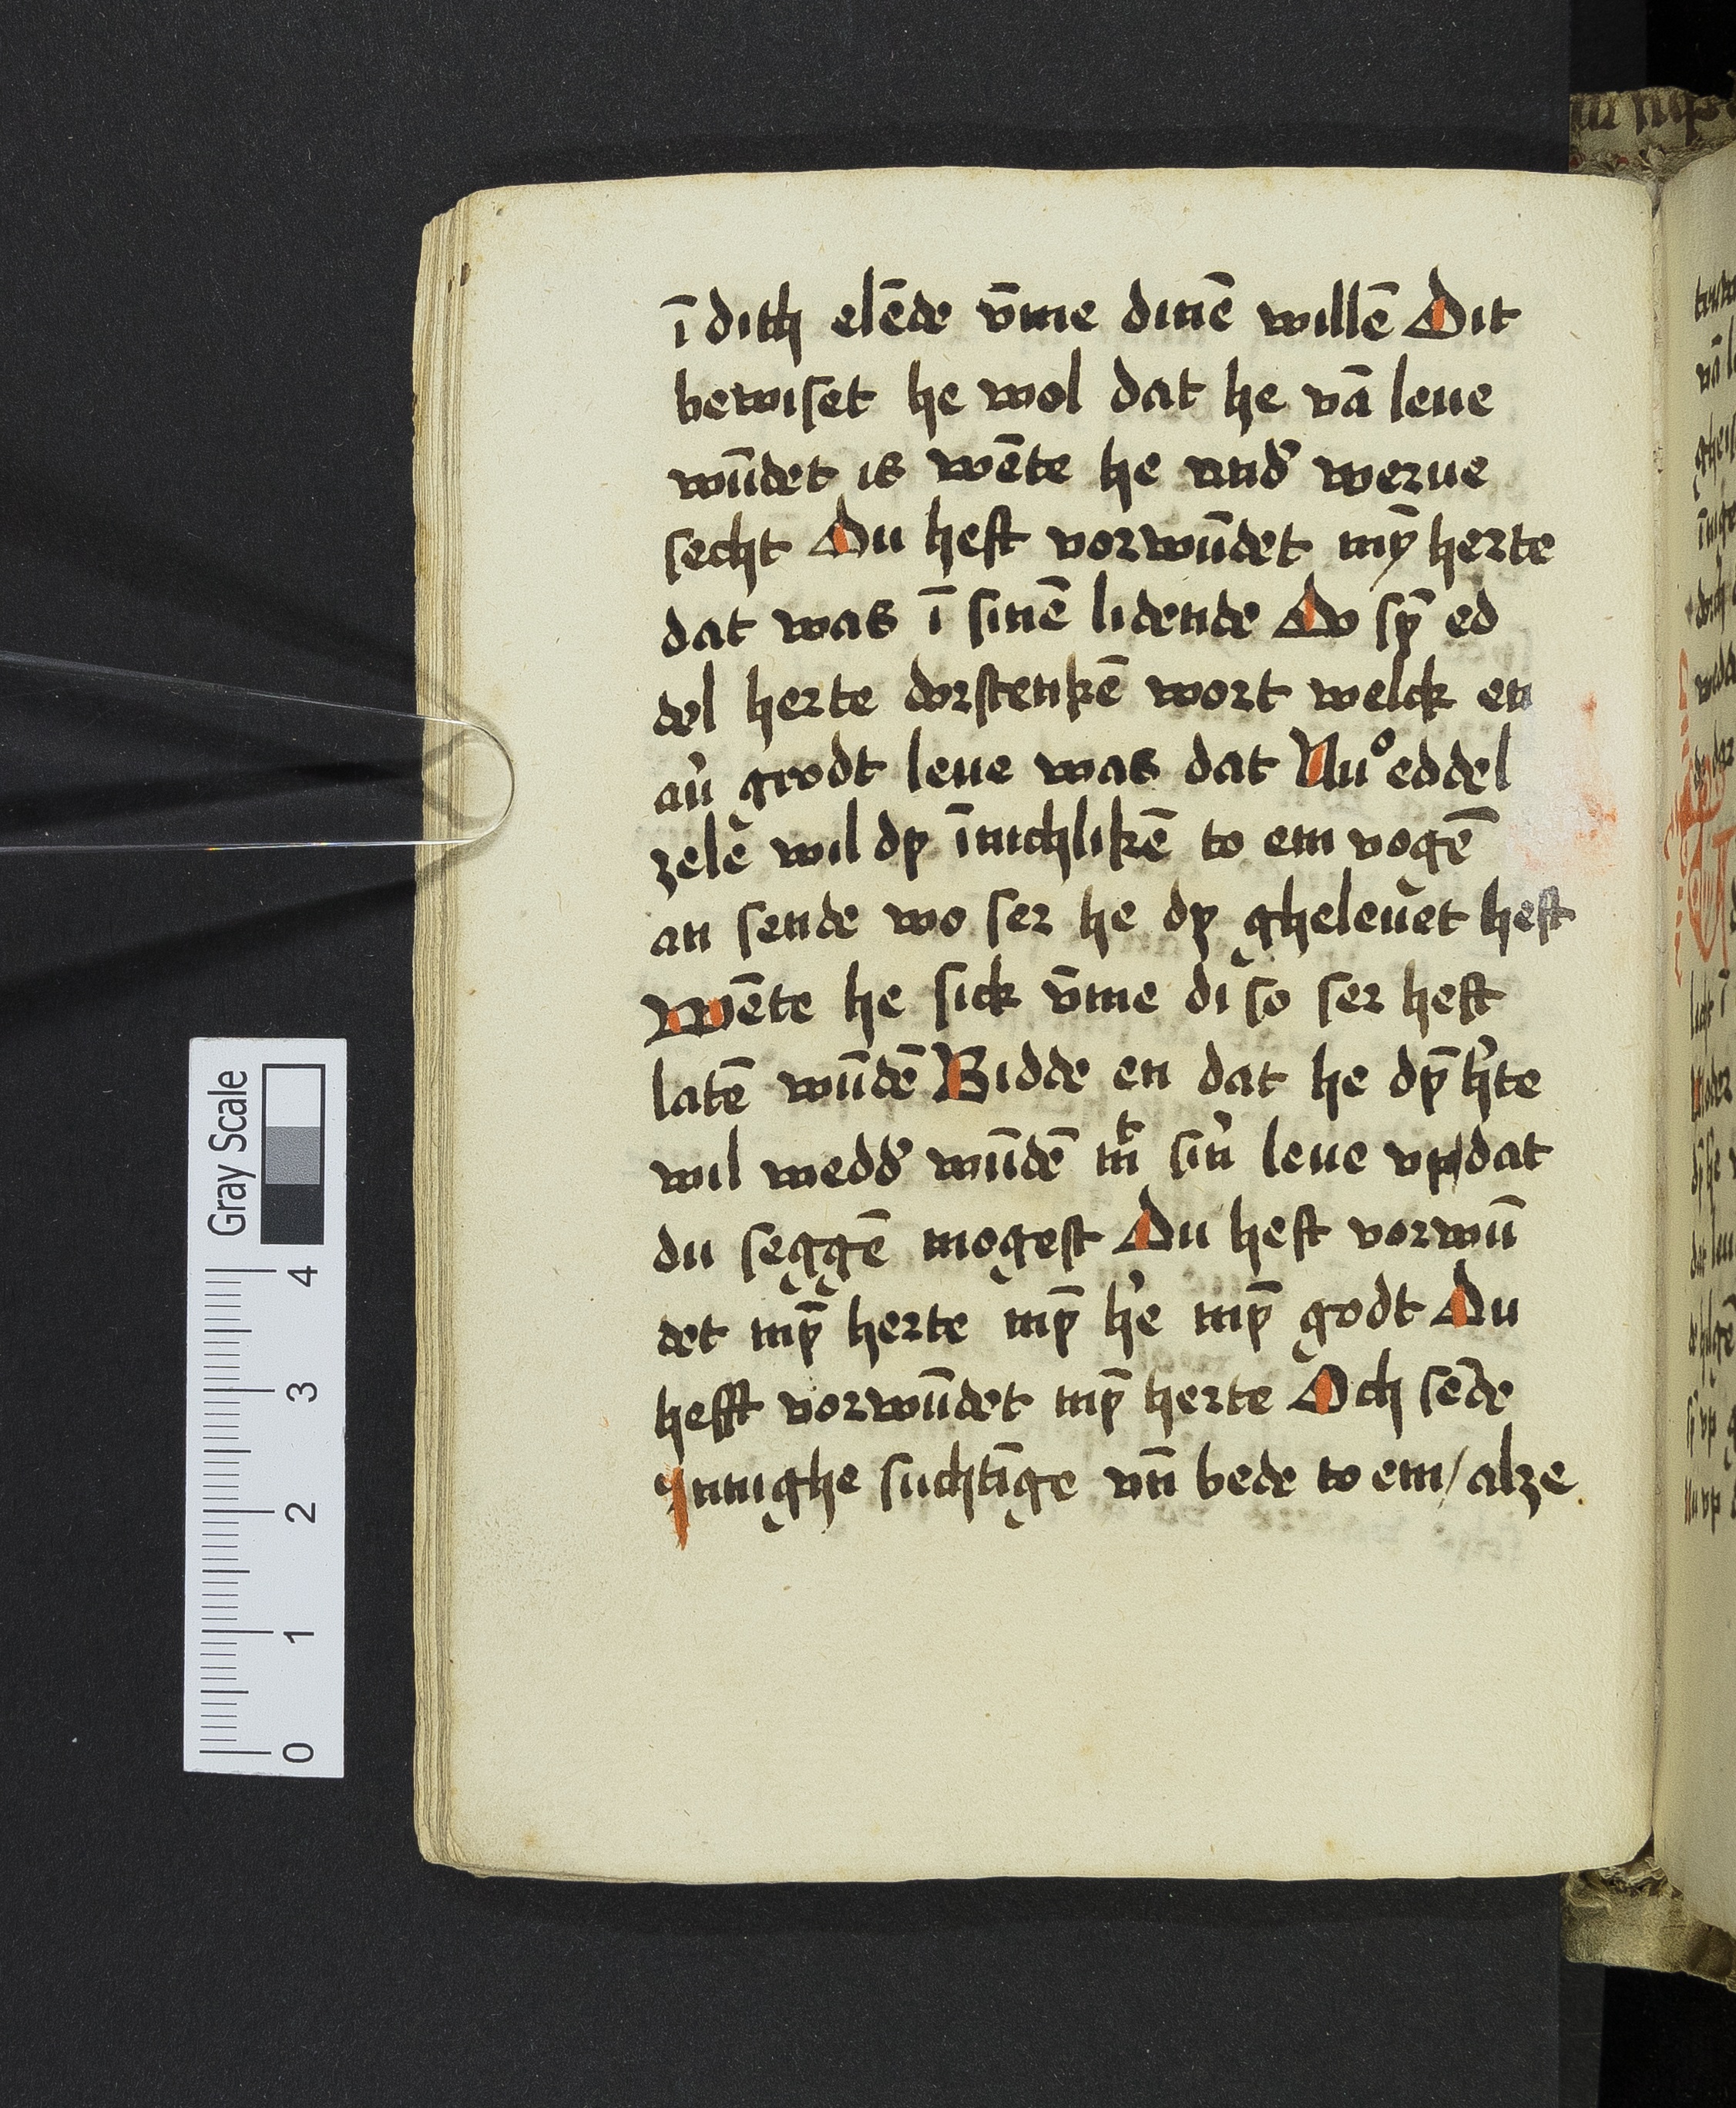 ī dith elēde v̄me dinē willē Dit
bewiset he wol dat he vā leue
wūdet is wēte he and̉ werue
secht Du hest vorwūdet mȳ herte
dat was ī sinē lidende Do sp̄ ed
del herte dorstenkē wort welck en
au̓ grodt leue was dat Nu° eddel
zele wil dy īnichlikē to em vogē
an sende wo ser he dy gheleuet heft
Wēte he sick v̄me di so ser heft
latē wūdē Bidde en dat he dȳ h̓te
wil wedd̉ wūdē mt̄ sin̓ leue vp/dat
du seggē mogest Du hest vorwū
det mȳ herte mȳ h̓e mȳ godt Du
hefft vorwūdet mȳ herte Och sēde
Innighe suchtīge vn̄ bede to em/alze
Gray Scale
0 1 2 3 4